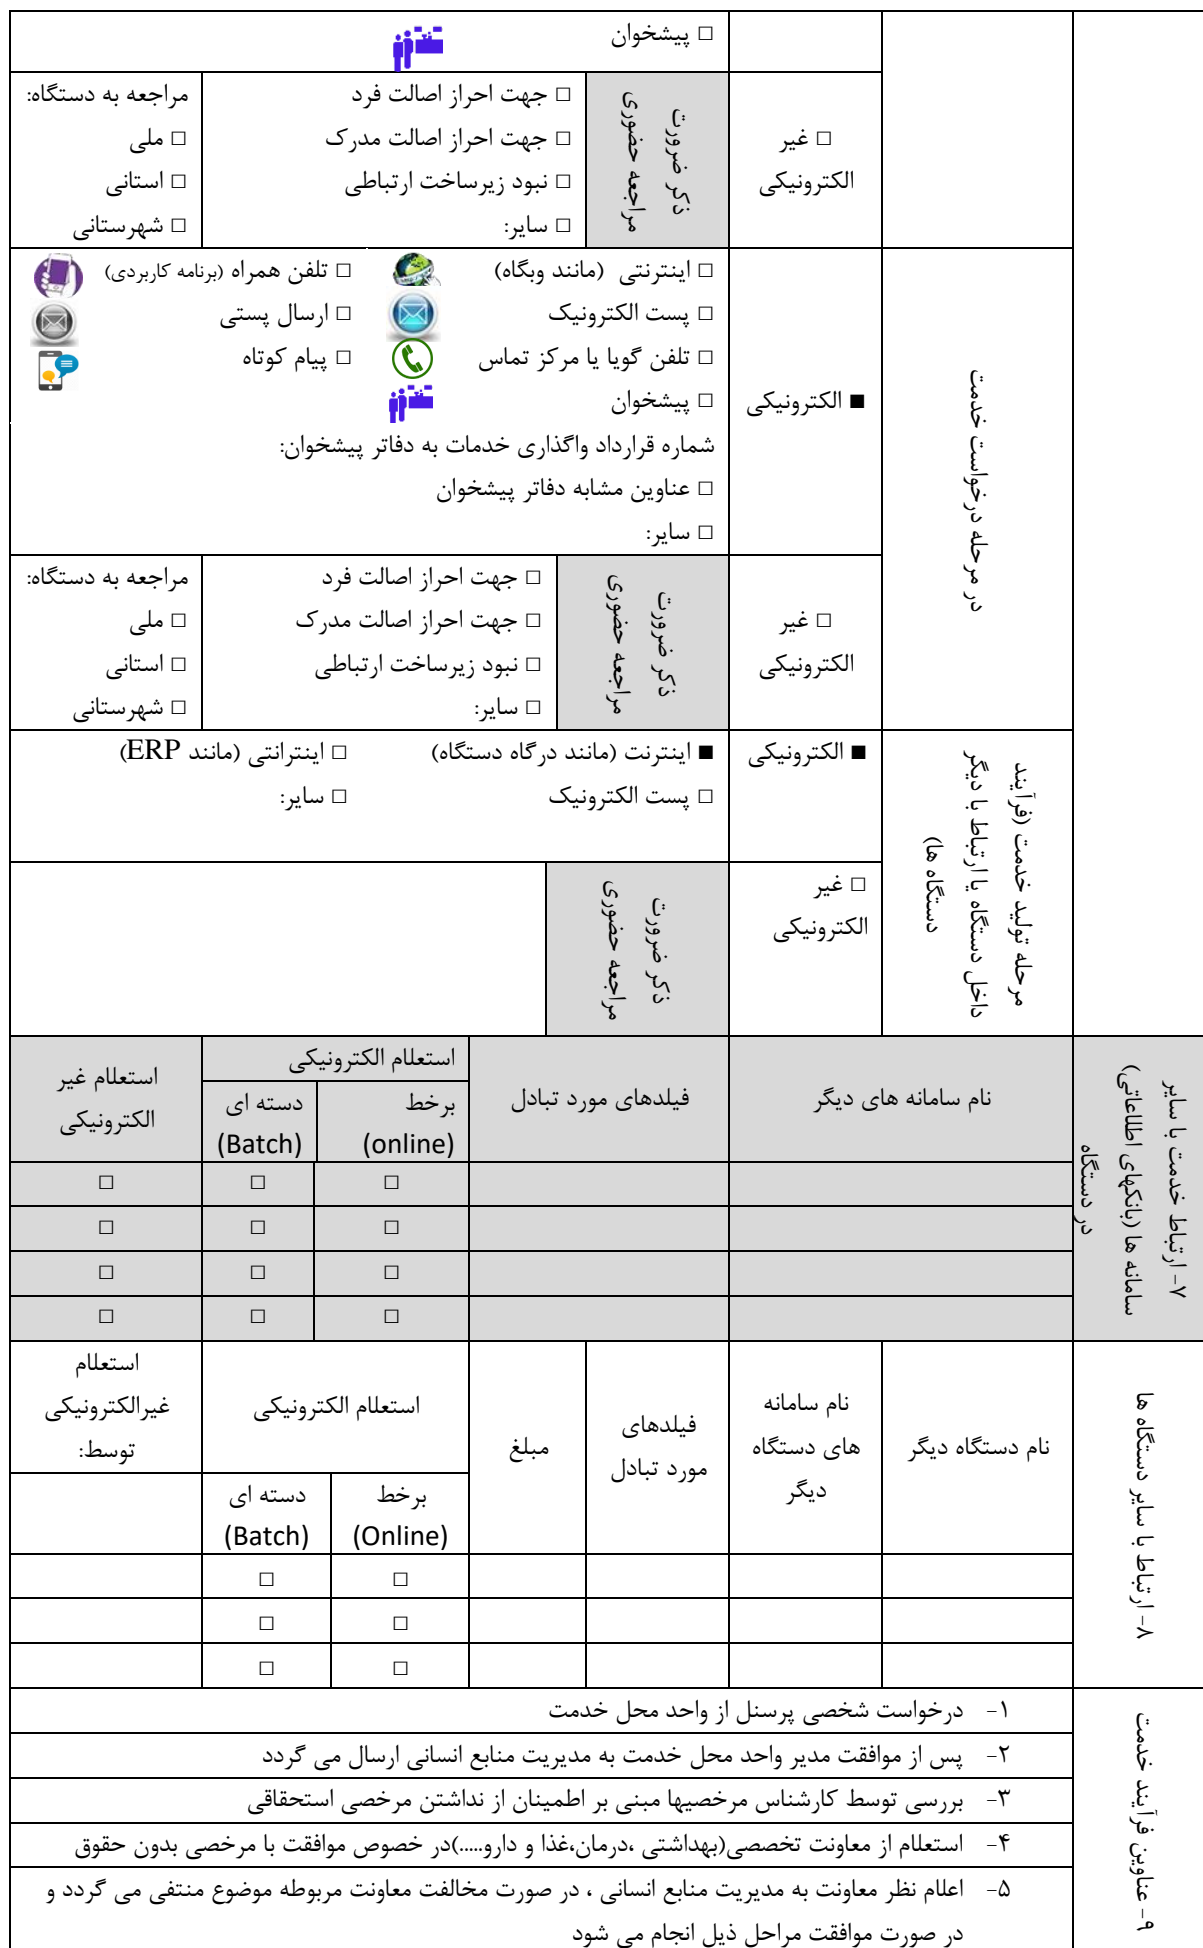 □ پیشخوان
□ غیر
الکترونیکی
ذکر ضرورت
مراجعه حضوری
□ جهت احراز اصالت فرد
□ جهت احراز اصالت مدرک
□ نبود زیرساخت ارتباطی
□ سایر:
مراجعه به دستگاه:
□ ملی
□ استانی
□ شهرستانی
در مرحله درخواست خدمت
■ الکترونیکی
□ اینترنتی (مانند وبگاه) □ تلفن همراه (برنامه کاربردی)
□ پست الکترونیک □ ارسال پستی
□ تلفن گویا یا مرکز تماس □ پیام کوتاه
□ پیشخوان
شماره قرارداد واگذاری خدمات به دفاتر پیشخوان:
□ عناوین مشابه دفاتر پیشخوان
□ سایر:
□ غیر
الکترونیکی
ذکر ضرورت
مراجعه حضوری
□ جهت احراز اصالت فرد
□ جهت احراز اصالت مدرک
□ نبود زیرساخت ارتباطی
□ سایر:
مراجعه به دستگاه:
□ ملی
□ استانی
□ شهرستانی
مرحله تولید خدمت (فرآیند
داخل دستگاه یا ارتباط با دیگر
دستگاه ها)
■ الکترونیکی
■ اینترنت (مانند درگاه دستگاه) □ اینترانتی (مانند ERP)
□ پست الکترونیک □ سایر:
□ غیر
الکترونیکی
ذکر ضرورت
مراجعه حضوری
۷- ارتباط خدمت با سایر
سامانه ها (بانکهای اطلاعاتی)
در دستگاه
نام سامانه های دیگر
فیلدهای مورد تبادل
استعلام الکترونیکی
برخط
(online)
دسته ای
(Batch)
استعلام غیر
الکترونیکی
□ □ □
□ □ □
□ □ □
□ □ □
۸- ارتباط با سایر دستگاه ها
نام دستگاه دیگر
نام سامانه
های دستگاه
دیگر
فیلدهای
مورد تبادل
مبلغ
استعلام الکترونیکی
برخط
(Online)
دسته ای
(Batch)
استعلام
غیرالکترونیکی
توسط:
□ □
□ □
□ □
۹- عناوین فرآیند خدمت
۱- درخواست شخصی پرسنل از واحد محل خدمت
۲- پس از موافقت مدیر واحد محل خدمت به مدیریت منابع انسانی ارسال می گردد
۳- بررسی توسط کارشناس مرخصیها مبنی بر اطمینان از نداشتن مرخصی استحقاقی
۴- استعلام از معاونت تخصصی(بهداشتی ،درمان،غذا و دارو.....)در خصوص موافقت با مرخصی بدون حقوق
۵- اعلام نظر معاونت به مدیریت منابع انسانی ، در صورت مخالفت معاونت مربوطه موضوع منتفی می گردد و
در صورت موافقت مراحل ذیل انجام می شود